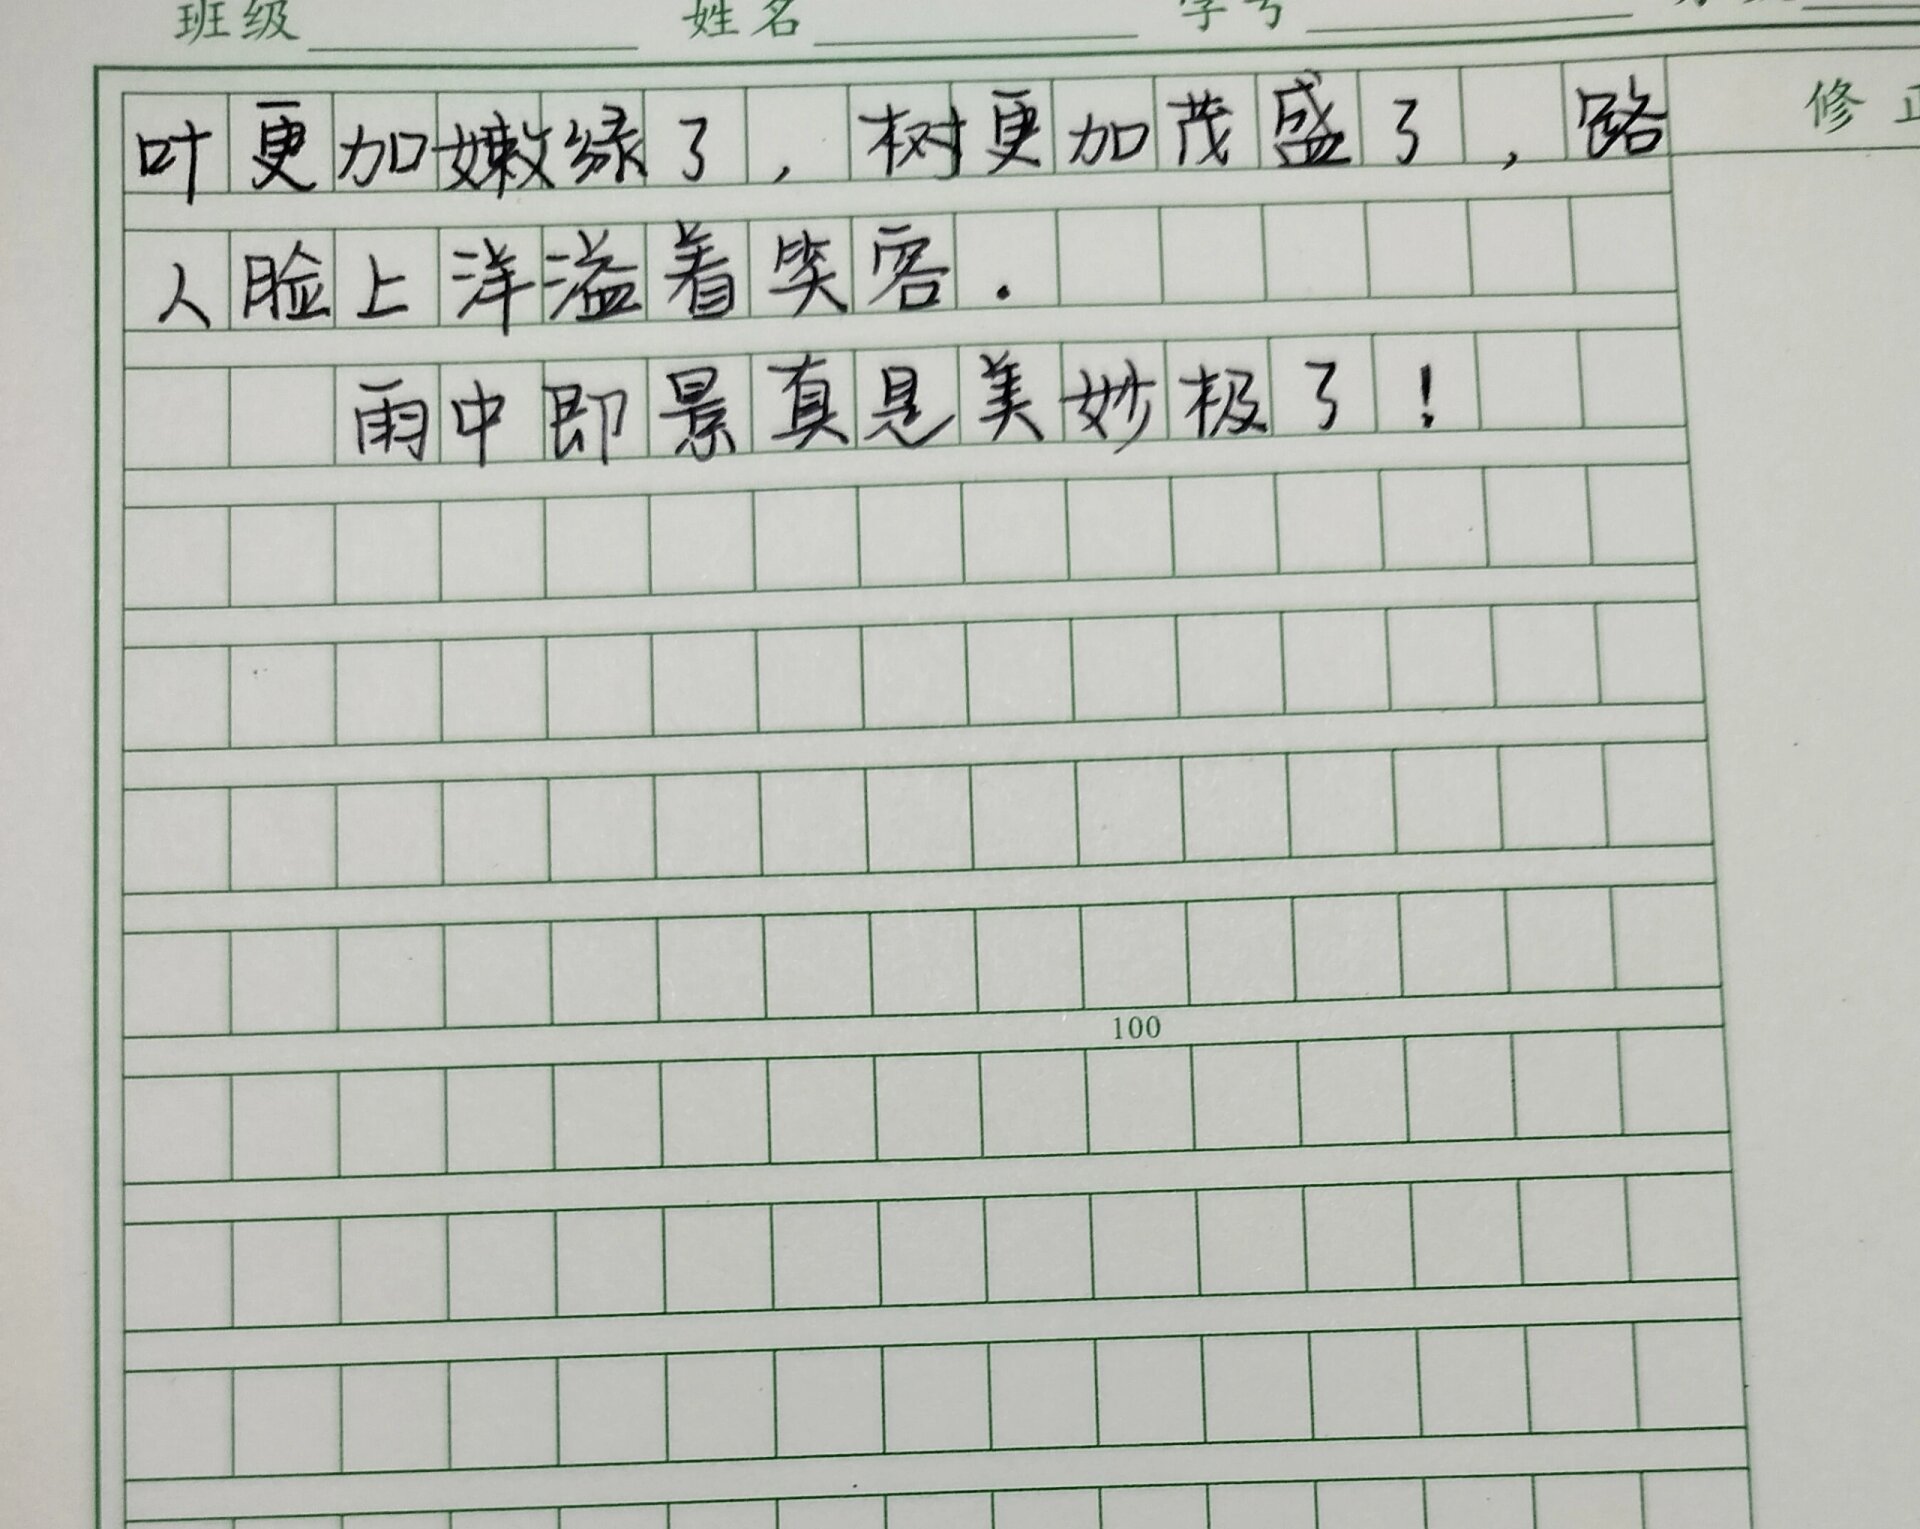 班级 姓名 学号
叶更加嫩绿了，树更加茂盛了，路
修正
人脸上洋溢着笑容.
雨中即景真是美妙极了！
100